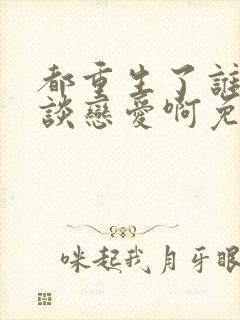 都重生了誰
談戀愛啊免
咪起我月牙眼